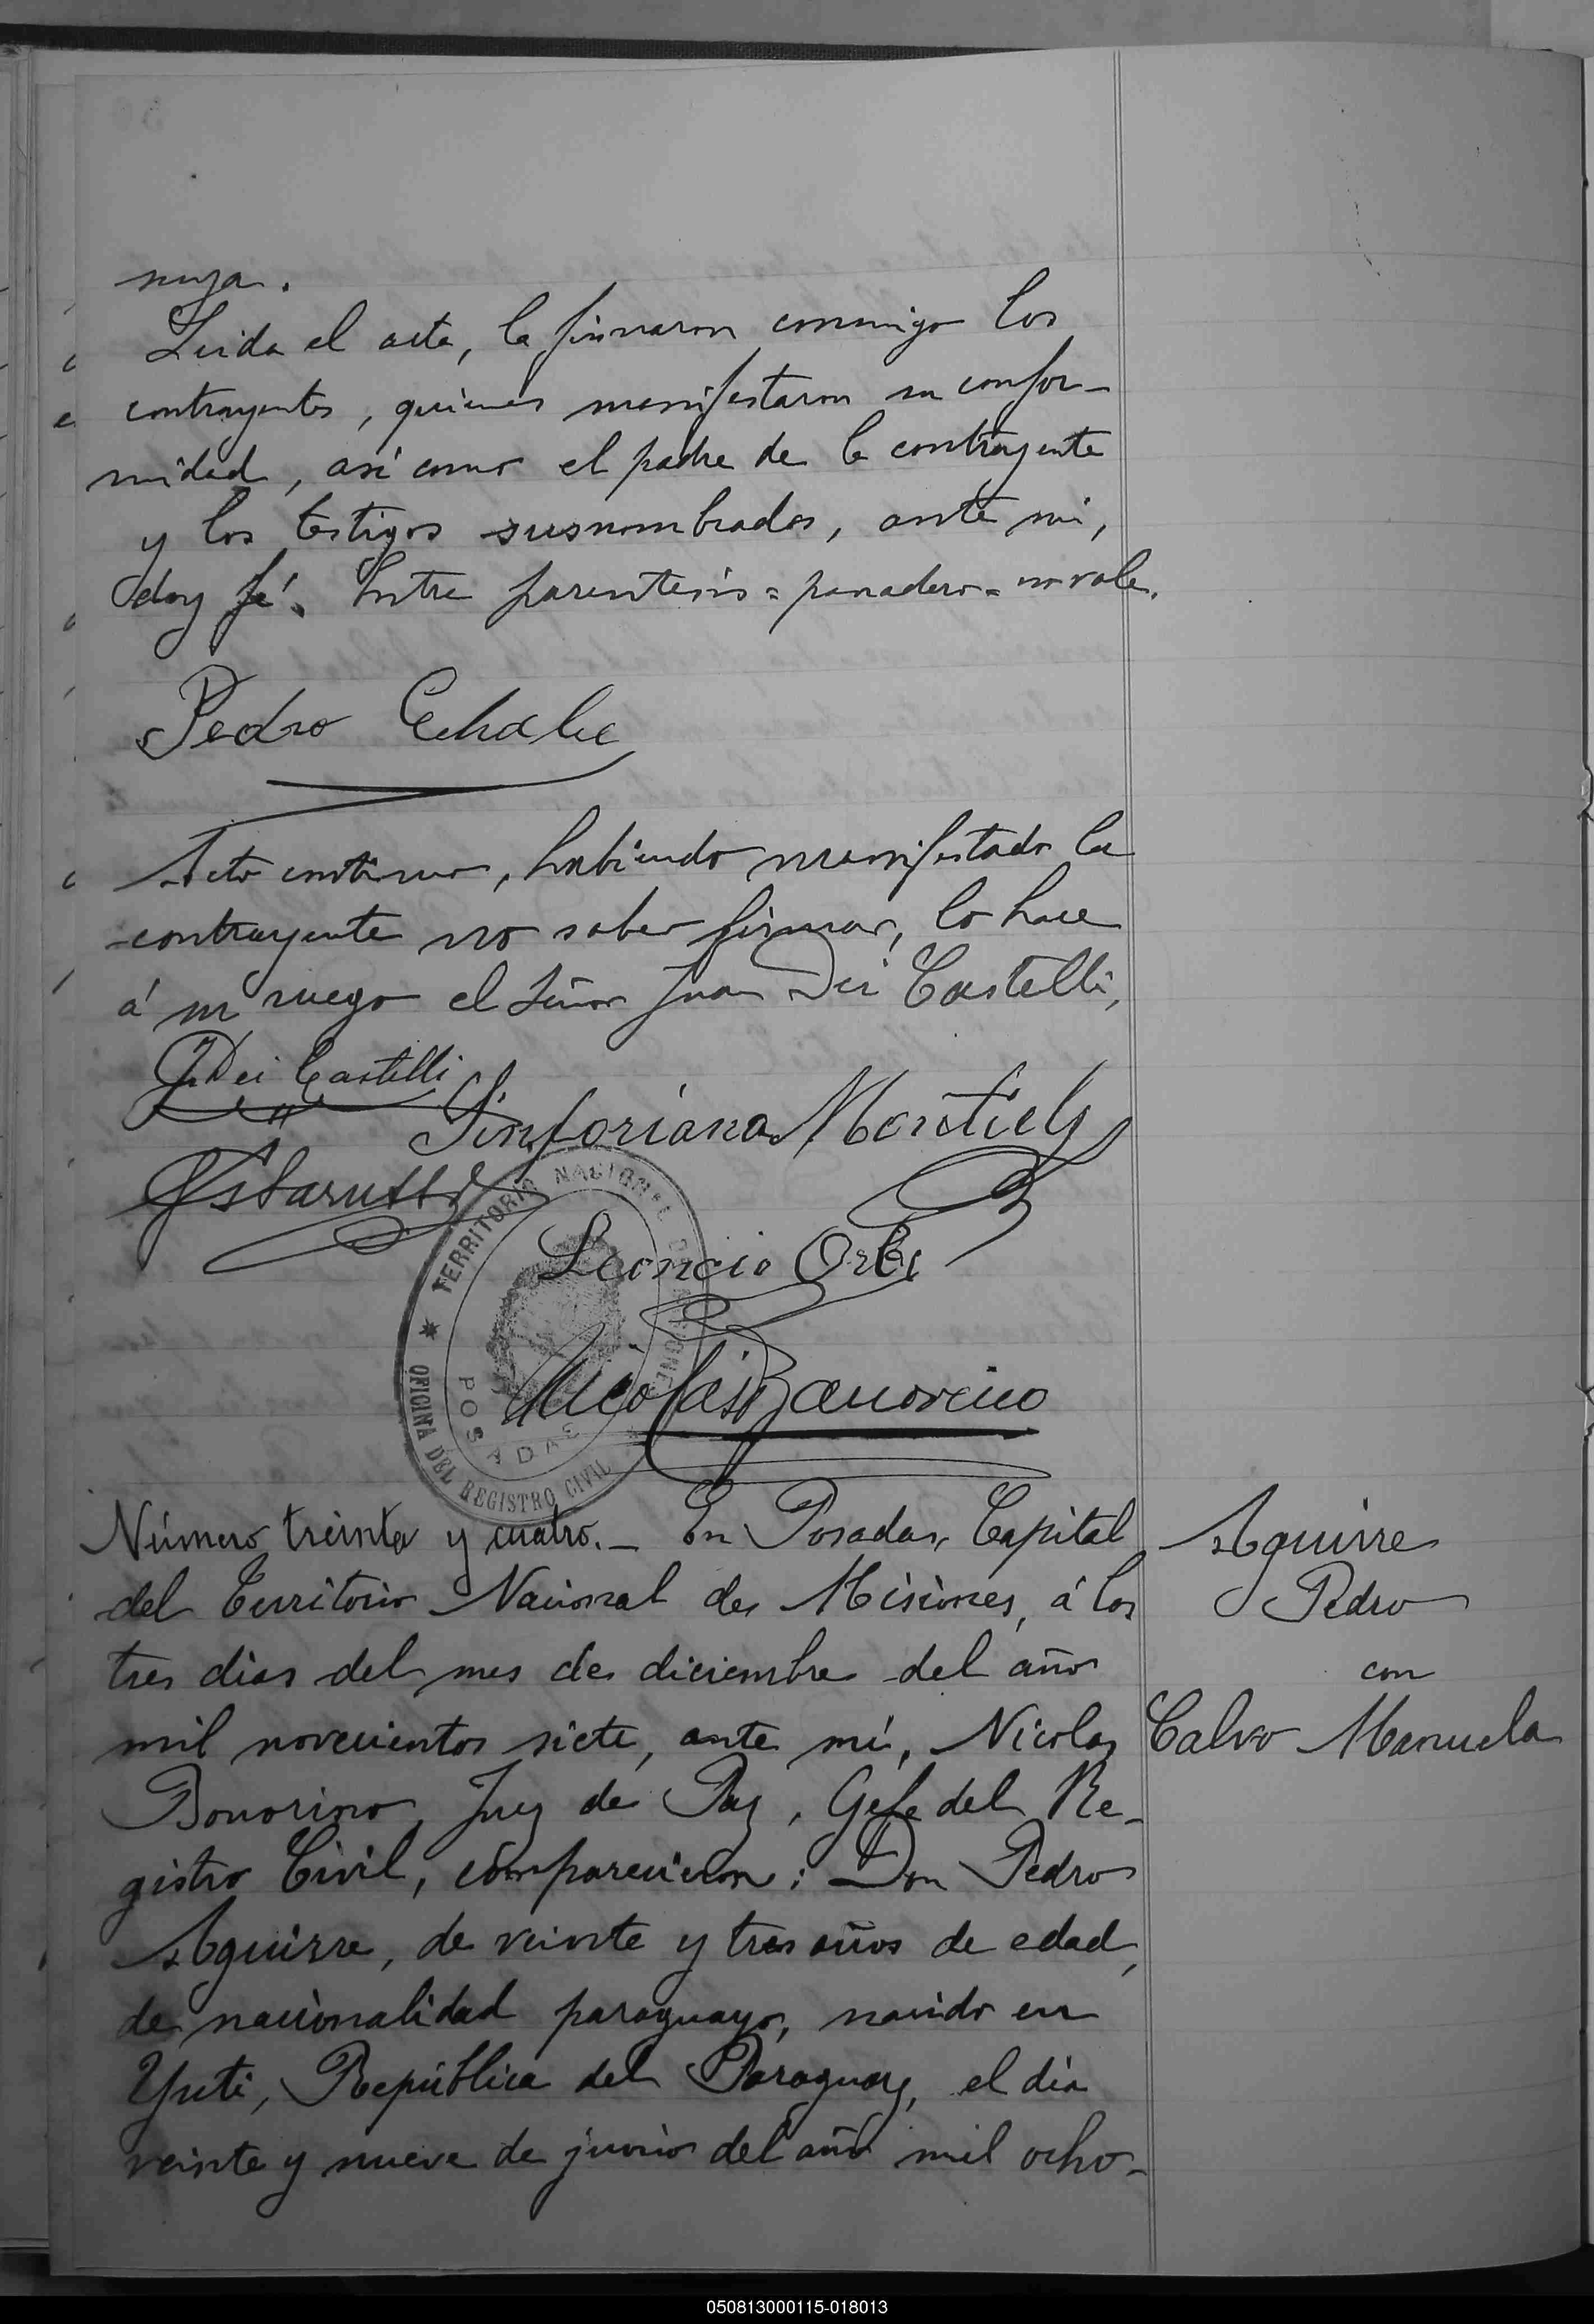 suya.
Leida el acta, la firmaron conmigo los
contrayentes, quienes manifestaron su confor-
midad, así como el padre de la contrayente
y los testigos susnombrados, ante mi,
doy fé. Entre parentesis = panadero = no vale.
Pedro
Acto continuo, habiendo manifestado la
contrayente no saber firmar, lo hace
á su ruego el Señor Juan Dei Castelli,
J. Dei Castelli
Sinforiana Montiel
Leoncio
Nicolas Bonorino
TERRITORIO NACIONAL DE MISIONES
OFICINA DEL REGISTRO CIVIL
POSADAS
Número treinta y cuatro.- En Posadas, Capital
del Territorio Nacional de Misiones, á los
tres dias del mes de diciembre del año
mil novecientos siete, ante mí, Nicolas
Bonorino, Juez de Paz, Gefe del Re-
gistro Civil, comparecieron: Don Pedro
Aguirre, de veinte y tres años de edad,
de nacionalidad paraguayo, nacido en
Yuti, República del Paraguay, el dia
veinte y nueve de junio del año mil ocho-
Aguirre
Pedro
con
Calvo Manuela
050813000115-018013